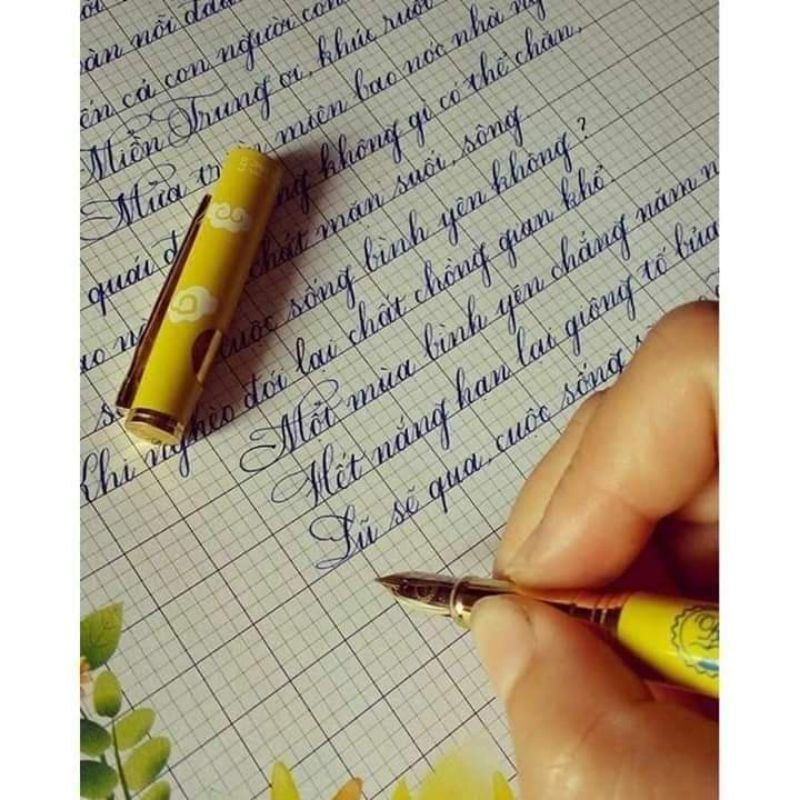 àn nỗi đau
ến cả con người con
Miền Trung ơi, khúc ruột
Mưa miên bao nóc nhà
quái không gì có thể chăn,
chát mặn suối, sông
cuộc sống bình yên không ?
Khi nghèo đói lại chất chồng gian khổ
Một mùa bình yên chẳng năm n
Hết nắng hạn lại giông tố bủa
Lũ sẽ qua, cuộc sống